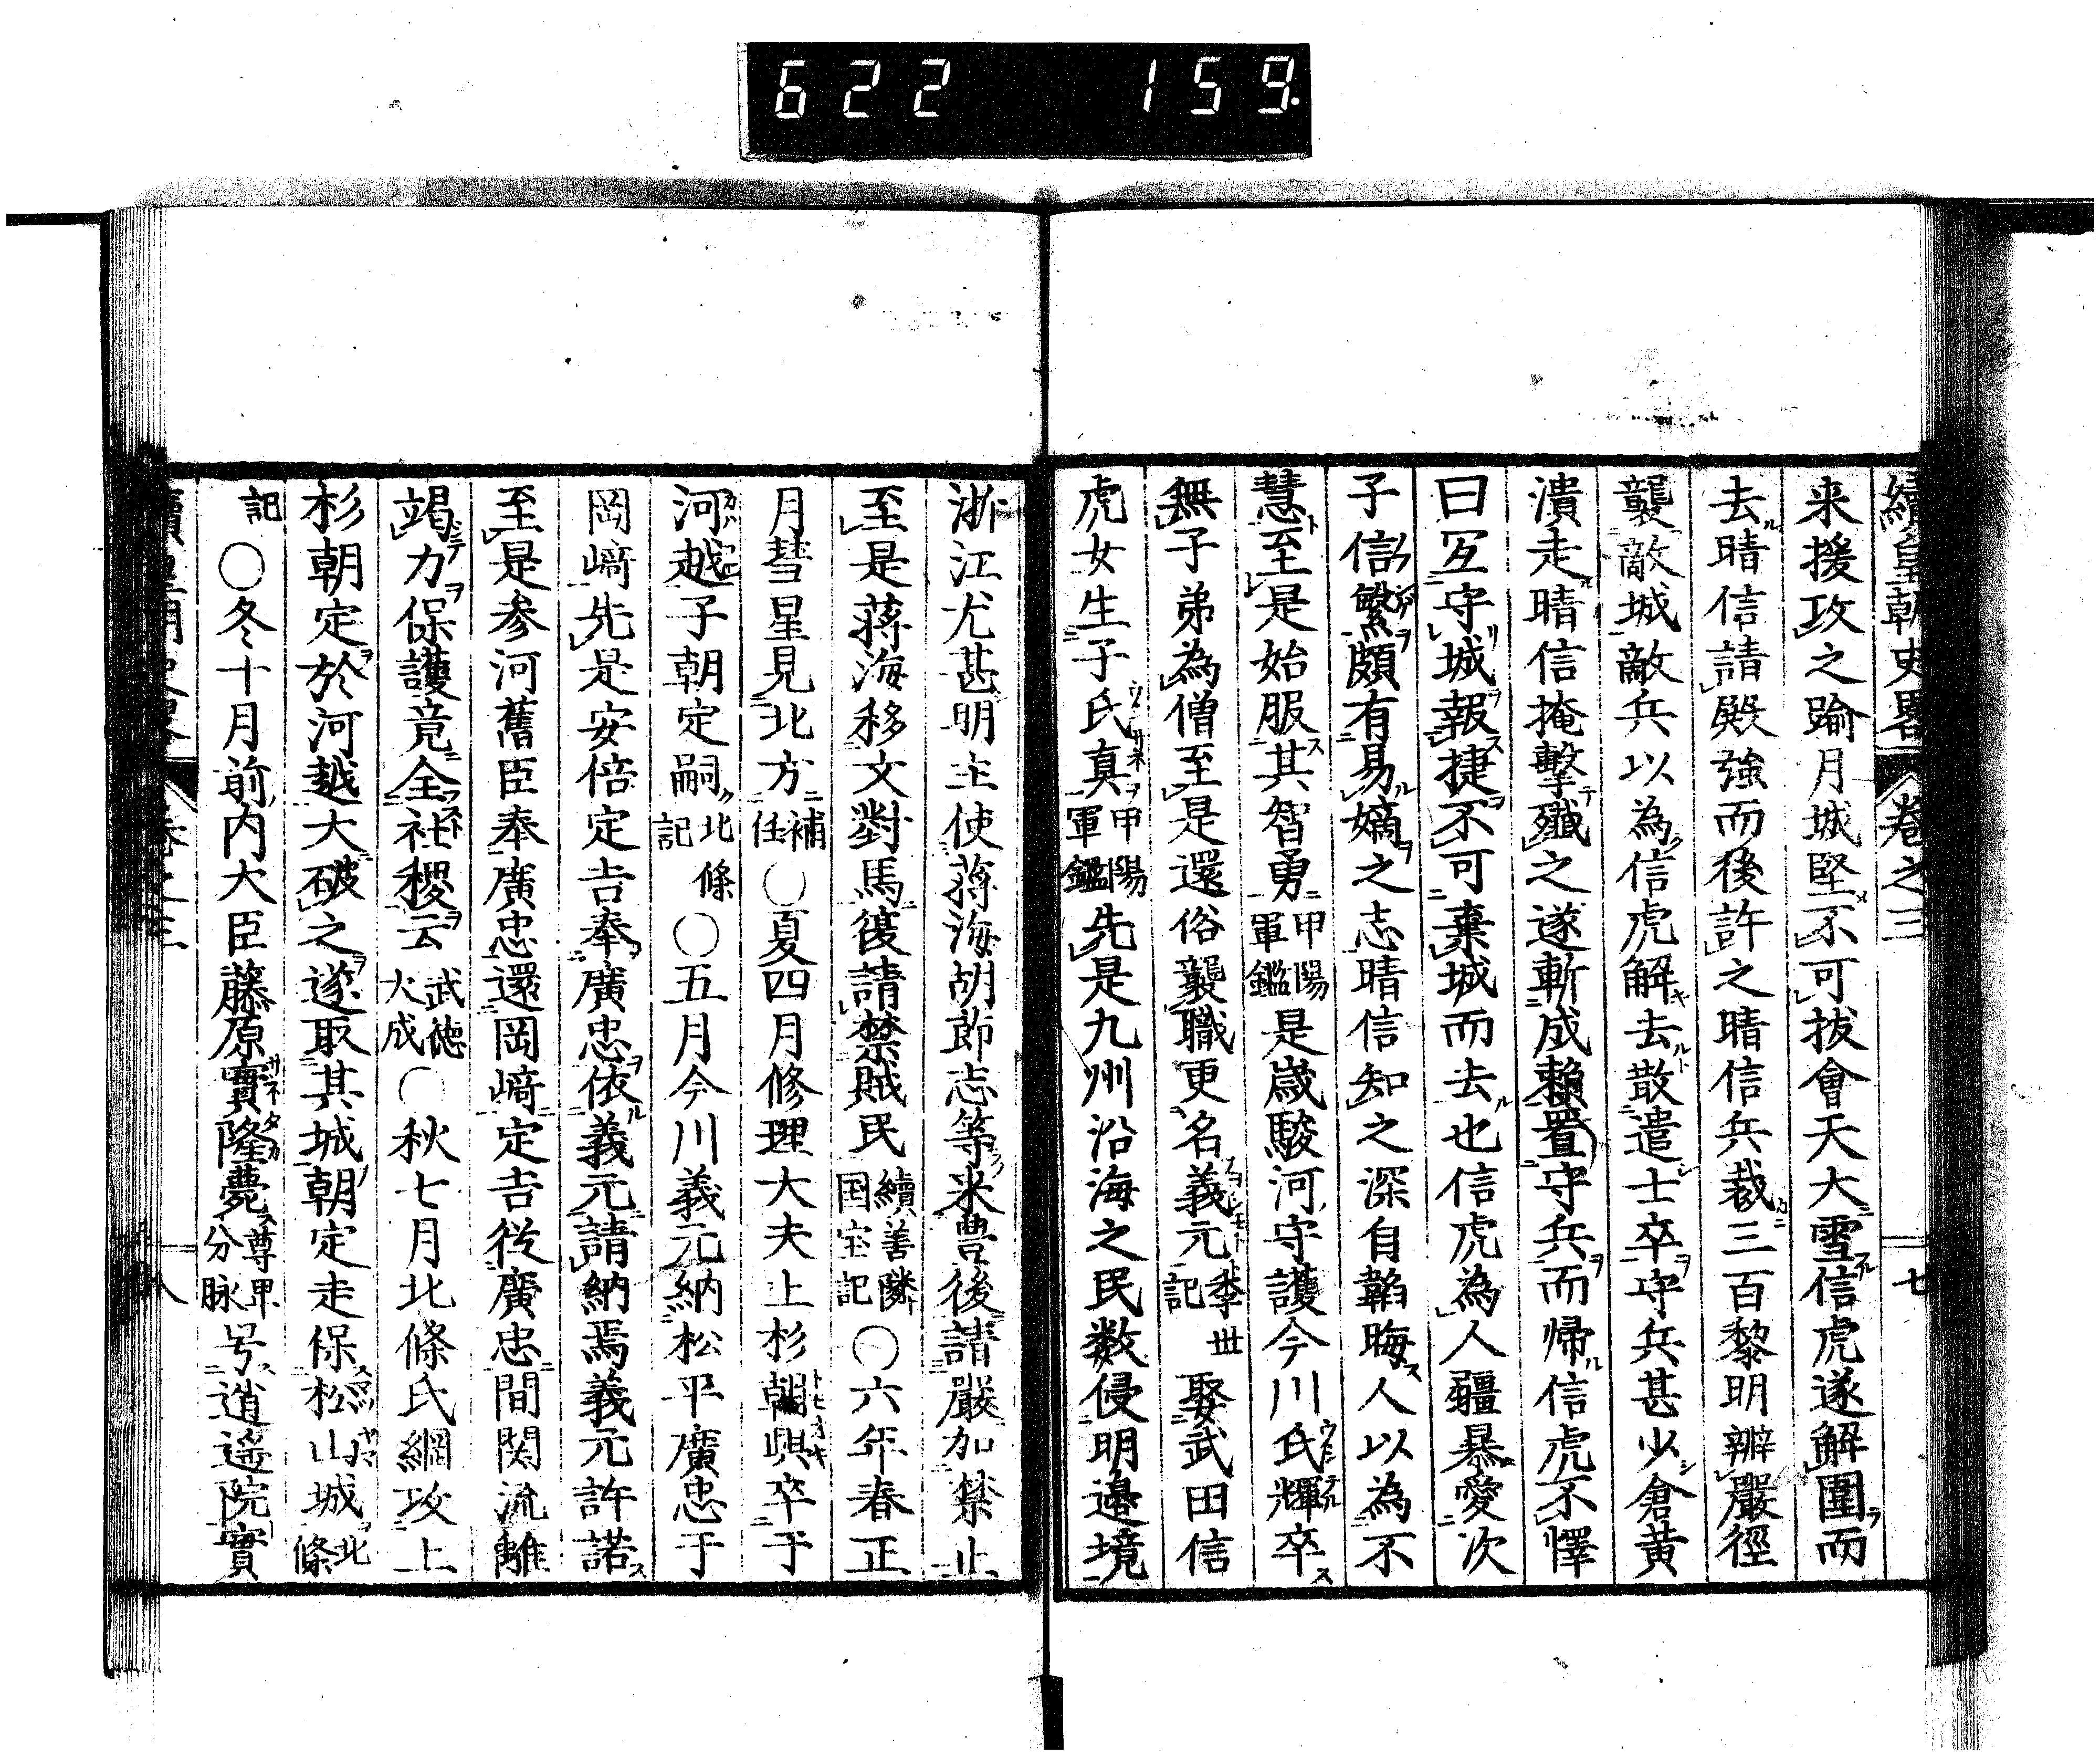 622 159.
續皇朝史畧 卷之三 七
来援攻之踰月城堅不可拔會天大雪信虎遂解圍而
去晴信請殿強而後許之晴信兵裁三百黎明辧嚴徑
襲敵城敵兵以為信虎解去散遣士卒守兵甚少倉黄
潰走晴信掩擊殲之遂斬成賴置守兵而帰信虎不懌
曰宜守城報捷不可棄城而去也信虎為人疆暴愛次
子信繁頗有易嫡之志晴信知之深自韜晦人以為不
慧至是始服其智勇甲陽軍鑑是歲駿河守護今川氏輝卒
無子弟為僧至是還俗襲職更名義元季世記娶武田信
虎女生子氏真甲陽軍鑑先是九州沿海之民数侵明邊境
浙江尤甚明主使蒋海胡節志等来豊後請嚴加禁止
至是蒋海移文對馬復請禁賊民續善隣国宝記○六年春正
月彗星見北方補任○夏四月修理大夫上杉朝興卒于
河越子朝定嗣北條記○五月今川義元納松平廣忠于
岡﨑先是安倍定吉奉廣忠依義元請納焉義元許諾
至是参河舊臣奉廣忠還岡﨑定吉從廣忠間関流離
竭力保護竟全社稷云武徳大成○秋七月北條氏綱攻上
杉朝定於河越大破之遂取其城朝定走保松山城北條
記○冬十月前内大臣藤原實隆薨尊卑分脉号逍遥院實